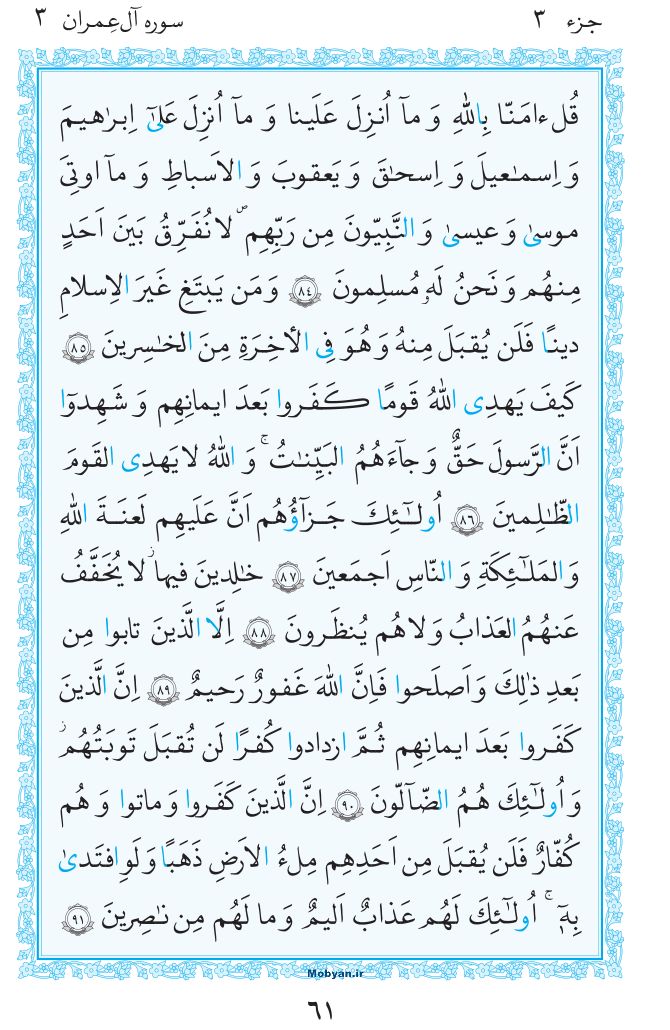 جزء ٣
سوره آل‌عِمران ٣
قُل ءامَنّا بِاللّٰهِ وَ مآ اُنزِلَ عَلَينا وَ مآ اُنزِلَ عَلىٰٓ اِبرٰهيمَ
وَ اِسمـٰعيلَ وَ اِسحـٰقَ وَ يَعقوبَ وَ الاَسباطِ وَ مآ اوتِىَ
موسىٰ وَ عيسىٰ وَ النَّبِيّونَ مِن رَبِّهِم ۖ لا نُفَرِّقُ بَينَ اَحَدٍ
مِنهُم وَ نَحنُ لَهٗ مُسلِمونَ ﴿٨٤﴾ وَ مَن يَبتَغِ غَيرَ الاِسلامِ
دينًا فَلَن يُقبَلَ مِنهُ وَ هُوَ فِى الأخِرَةِ مِنَ الخٰسِرينَ ﴿٨٥﴾
كَيفَ يَهدِى اللّٰهُ قَومًا كَفَروا بَعدَ ايمانِهِم وَ شَهِدوٓا
اَنَّ الرَّسولَ حَقٌّ وَ جآءَهُمُ البَيِّنـٰتُ ۚ وَ اللّٰهُ لا يَهدِى القَومَ
الظّـٰلِمينَ ﴿٨٦﴾ اُولـٰٓئِكَ جَزآؤُهُم اَنَّ عَلَيهِم لَعنَةَ اللّٰهِ
وَ المَلـٰٓئِكَةِ وَ النّاسِ اَجمَعينَ ﴿٨٧﴾ خٰلِدينَ فيها ۛ لا يُخَفَّفُ
عَنهُمُ العَذابُ وَ لا هُم يُنظَرونَ ﴿٨٨﴾ اِلَّا الَّذينَ تابوا مِن
بَعدِ ذٰلِكَ وَ اَصلَحوا فَاِنَّ اللّٰهَ غَفورٌ رَحيمٌ ﴿٨٩﴾ اِنَّ الَّذينَ
كَفَروا بَعدَ ايمانِهِم ثُمَّ ازدادوا كُفرًا لَن تُقبَلَ تَوبَتُهُم
وَ اُولـٰٓئِكَ هُمُ الضّآلّونَ ﴿٩٠﴾ اِنَّ الَّذينَ كَفَروا وَ ماتوا وَ هُم
كُفّارٌ فَلَن يُقبَلَ مِن اَحَدِهِم مِلءُ الاَرضِ ذَهَبًا وَ لَوِ افتَدىٰ
بِهٖٓ ۗ اُولـٰٓئِكَ لَهُم عَذابٌ اَليمٌ وَ ما لَهُم مِن نـٰصِرينَ ﴿٩١﴾
Mobyan.ir
٦١